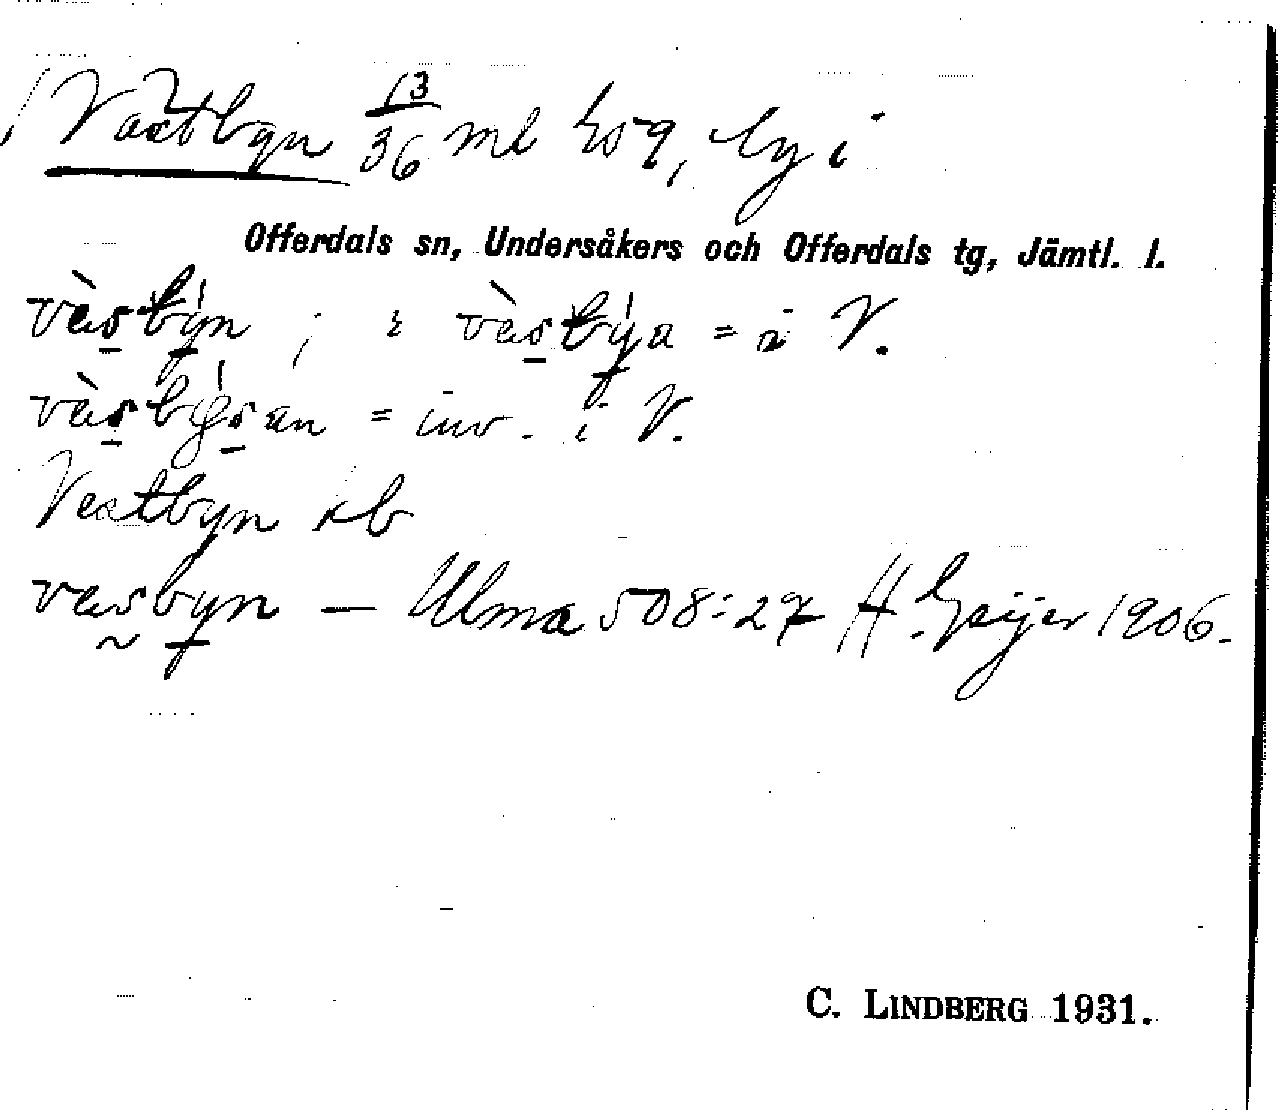 Vastbyn 13/36 ml 259, by i
Offerdals sn, Undersåkers och Offerdals tg, Jämtl. l.
vàsbýn ; i vàsbýa = i V.
vàsbýsan = inv. i V.
Vestbyn kb
vasbyn — Ulma 508:27 H. Geijer 1906.
C. LINDBERG 1931.